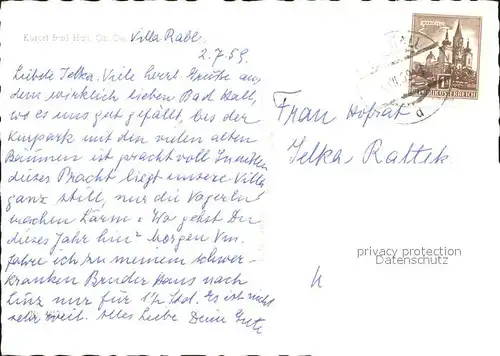 Kurort Bad Hall, Ob. Oe.
Villa Rabl
2.7.59.
Liebste Jelka. Viele herzl. Grüße aus
dem wirklich lieben Bad Hall,
wo es uns gut gefällt, bes. der
Kurpark mit den vielen alten
Bäumen ist prachtvoll. Inmitten
dieser Pracht liegt unsere Villa
ganz still, nur die Vögerln
machen Lärm. Wo gehst Du
dieses Jahr hin? Morgen Vm.
fahre ich zu meinem schwer-
kranken Bruder Hans nach
Linz nur für 1½ Std. Es ist nicht
sehr weit. Alles Liebe Deine Grete
Frau Hofrat
Jelka Rattek
REPUBLIK ÖSTERREICH
HALL
a
privacy protection
Datenschutz